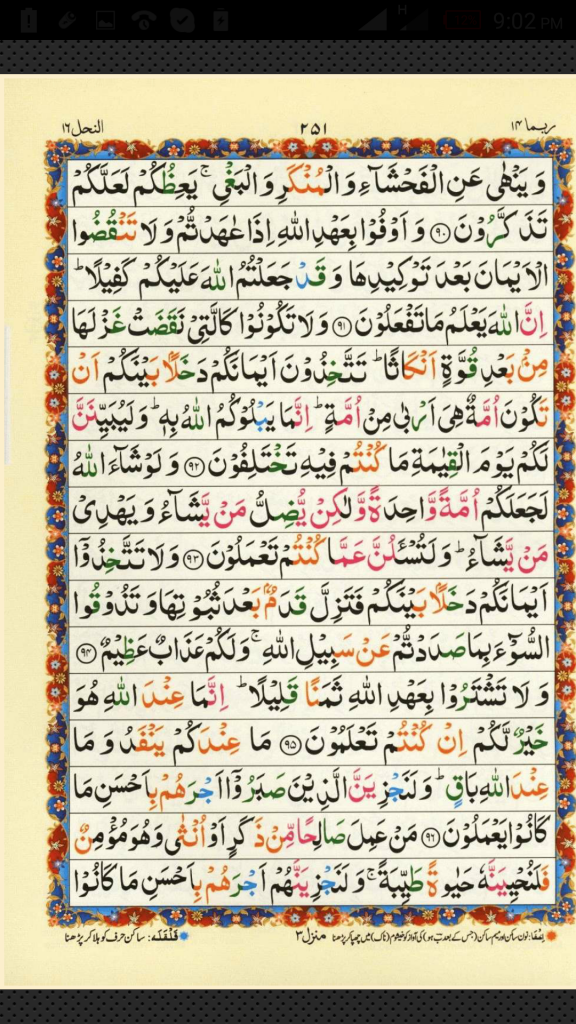 9:02 PM
H
النحل ١٦
٢٥١
ربما ١۴
وَ يَنْهٰى عَنِ الْفَحْشَآءِ وَ الْمُنْكَرِ وَ الْبَغْيِ ۚ يَعِظُكُمْ لَعَلَّكُمْ
تَذَكَّرُوْنَ ﴿۹۰﴾ وَ اَوْفُوْا بِعَهْدِ اللّٰهِ اِذَا عٰهَدْتُّمْ وَ لَا تَنْقُضُوا
الْاَيْمَانَ بَعْدَ تَوْكِيْدِهَا وَ قَدْ جَعَلْتُمُ اللّٰهَ عَلَيْكُمْ كَفِيْلًا ؕ
اِنَّ اللّٰهَ يَعْلَمُ مَا تَفْعَلُوْنَ ﴿۹۱﴾ وَ لَا تَكُوْنُوْا كَالَّتِيْ نَقَضَتْ غَزْلَهَا
مِنْۢ بَعْدِ قُوَّةٍ اَنْكَاثًا ؕ تَتَّخِذُوْنَ اَيْمَانَكُمْ دَخَلًۢا بَيْنَكُمْ اَنْ
تَكُوْنَ اُمَّةٌ هِيَ اَرْبٰى مِنْ اُمَّةٍ ؕ اِنَّمَا يَبْلُوْكُمُ اللّٰهُ بِهٖ ؕ وَ لَيُبَيِّنَنَّ
لَكُمْ يَوْمَ الْقِيٰمَةِ مَا كُنْتُمْ فِيْهِ تَخْتَلِفُوْنَ ﴿۹۲﴾ وَ لَوْ شَآءَ اللّٰهُ
لَجَعَلَكُمْ اُمَّةً وَّاحِدَةً وَّلٰكِنْ يُّضِلُّ مَنْ يَّشَآءُ وَ يَهْدِيْ
مَنْ يَّشَآءُ ؕ وَ لَتُسْـَٔلُنَّ عَمَّا كُنْتُمْ تَعْمَلُوْنَ ﴿۹۳﴾ وَ لَا تَتَّخِذُوْۤا
اَيْمَانَكُمْ دَخَلًۢا بَيْنَكُمْ فَتَزِلَّ قَدَمٌۢ بَعْدَ ثُبُوْتِهَا وَ تَذُوْقُوا
السُّوْٓءَ بِمَا صَدَدْتُّمْ عَنْ سَبِيْلِ اللّٰهِ ۚ وَ لَكُمْ عَذَابٌ عَظِيْمٌ ﴿۹۴﴾
وَ لَا تَشْتَرُوْا بِعَهْدِ اللّٰهِ ثَمَنًا قَلِيْلًا ؕ اِنَّمَا عِنْدَ اللّٰهِ هُوَ
خَيْرٌ لَّكُمْ اِنْ كُنْتُمْ تَعْلَمُوْنَ ﴿۹۵﴾ مَا عِنْدَكُمْ يَنْفَدُ وَ مَا
عِنْدَ اللّٰهِ بَاقٍ ؕ وَ لَنَجْزِيَنَّ الَّذِيْنَ صَبَرُوْۤا اَجْرَهُمْ بِاَحْسَنِ مَا
كَانُوْا يَعْمَلُوْنَ ﴿۹۶﴾ مَنْ عَمِلَ صَالِحًا مِّنْ ذَكَرٍ اَوْ اُنْثٰى وَ هُوَ مُؤْمِنٌ
فَلَنُحْيِيَنَّهٗ حَيٰوةً طَيِّبَةً ۚ وَ لَنَجْزِيَنَّهُمْ اَجْرَهُمْ بِاَحْسَنِ مَا كَانُوْا
اِخفا: نون ساکن اور میم ساکن (جس کے بعد ب ہو) کی آواز کو خیشوم (ناک) میں چھپا کر پڑھنا منزل ٣ قلقلہ: ساکن حرف کو ہلا کر پڑھنا